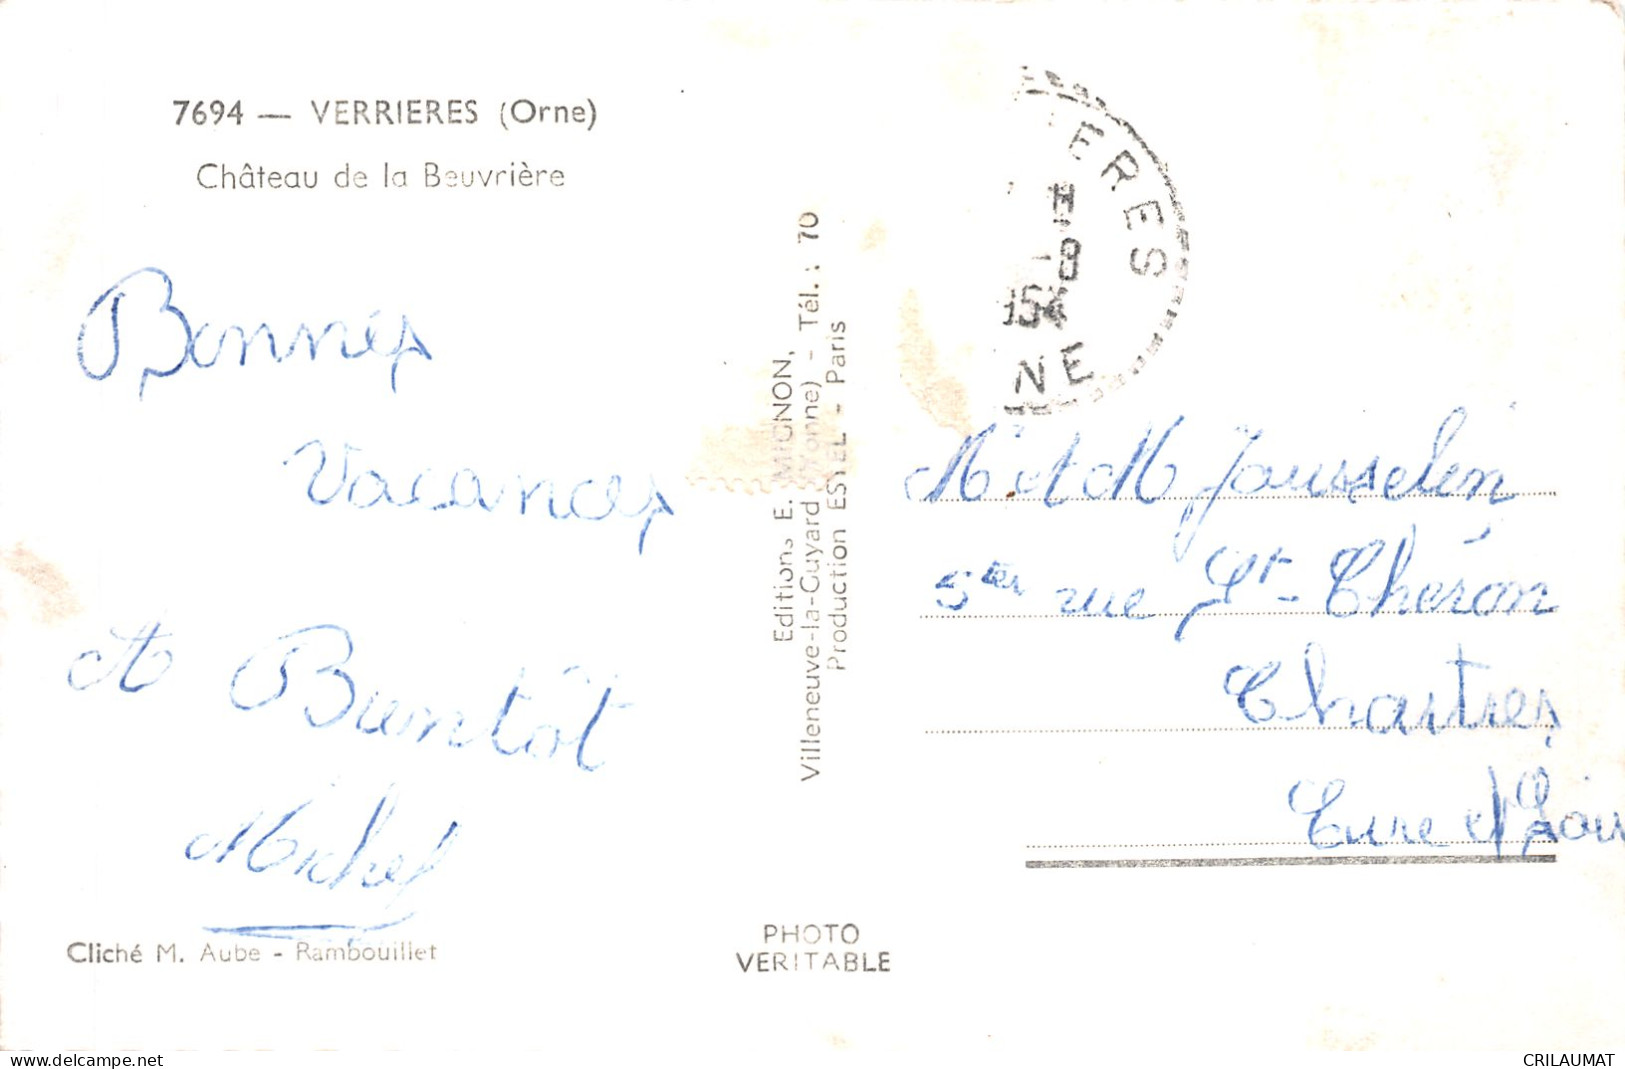 7694 — VERRIERES (Orne)
Château de la Beuvrière
Bonnes
Vacances
A Bientôt
Michel
Cliché M. Aube - Rambouillet
Editions E. MIGNON,
Villeneuve-la-Guyard (Yonne) - Tél. : 70
Production ESTEL - Paris
PHOTO
VERITABLE
ERES
8
1954
NE
Mr et M Jousselin
5ter rue St-Chéron
Chartres
Eure et Loir
www.delcampe.net
CRILAUMAT